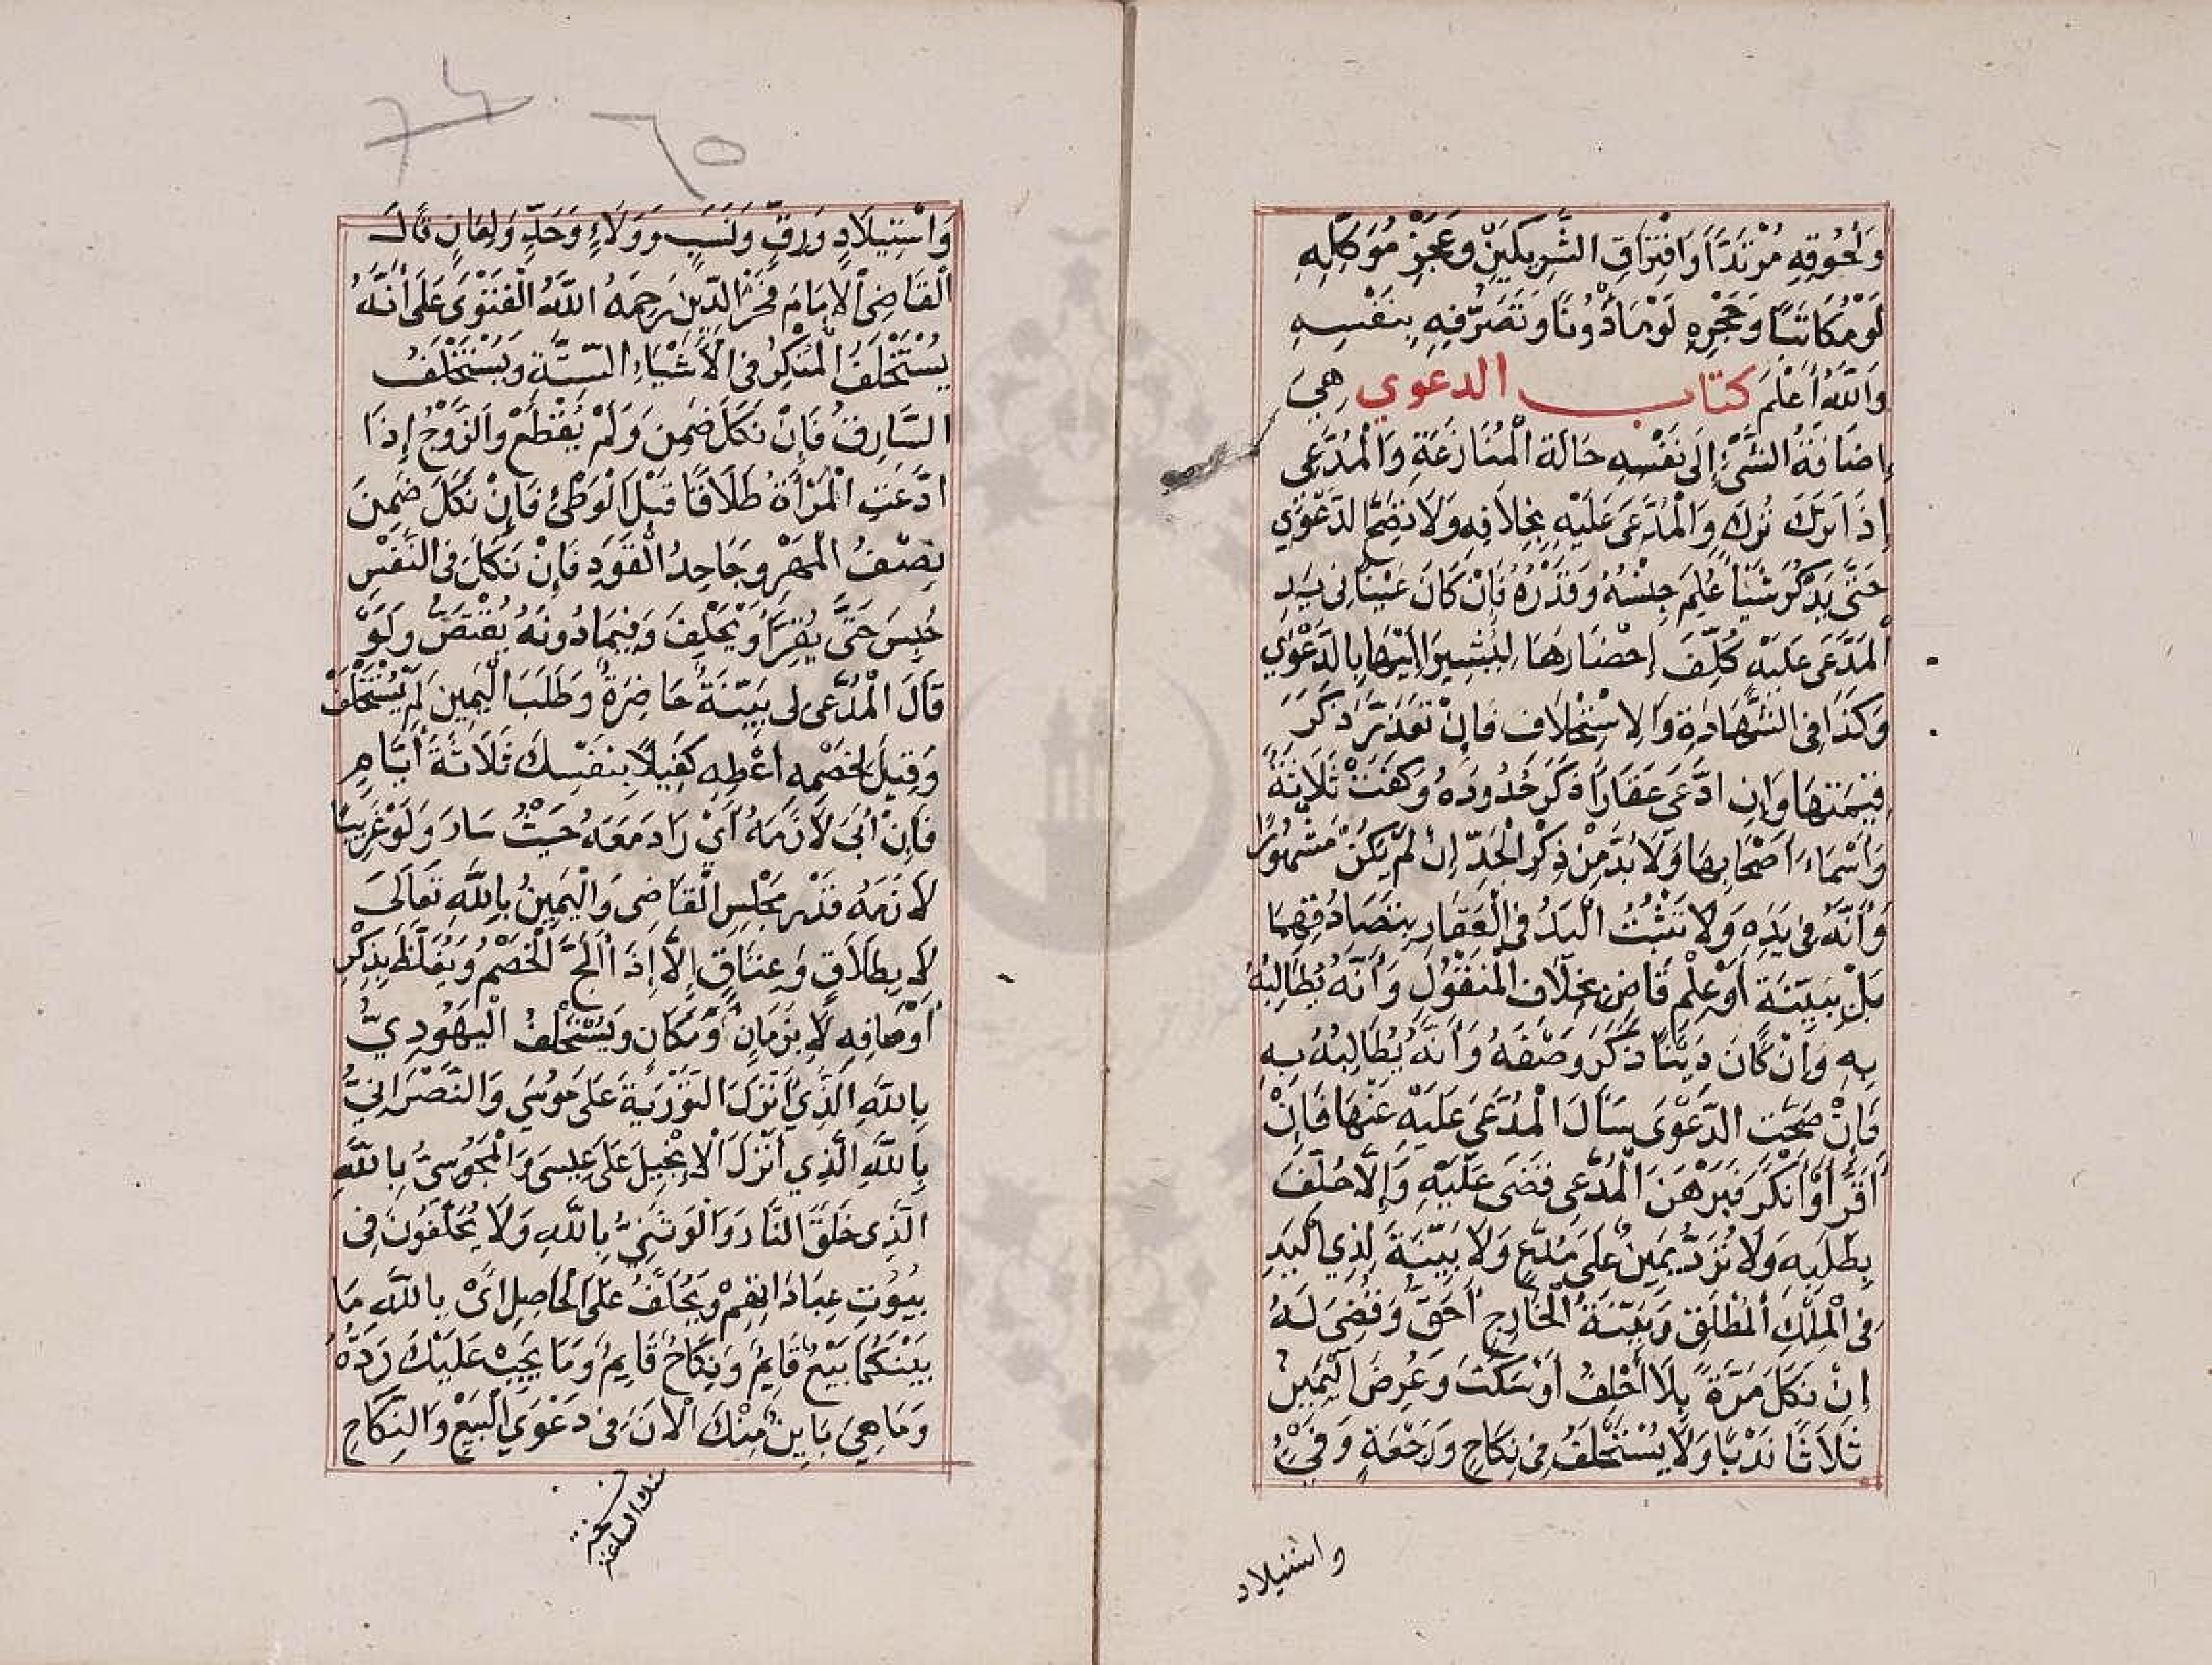 وَلُحُوقِهِ مُرْتَدًّا وَافْتِرَاقِ الشَّرِيكَيْنِ وَعَجْزِ مُوَكِّلِهِ
لَوْ مُكَاتَبًا وَحَجْرِهِ لَوْ مَأْذُونًا وَتَصَرُّفِهِ بِنَفْسِهِ
وَاللّٰهُ أَعْلَمُ كتاب الدعوي هِيَ
إِضَافَةُ الشَّيْءِ إِلَى نَفْسِهِ حَالَةَ الْمُنَازَعَةِ وَالْمُدَّعِي
إِذَا تَرَكَ تُرِكَ وَالْمُدَّعَى عَلَيْهِ بِخِلَافِهِ وَلَا تَصِحُّ الدَّعْوَي
حَتَّى يَذْكُرَ شَيْئًا عُلِمَ جِنْسُهُ وَقَدْرُهُ فَإِنْ كَانَ عَيْنًا فِي يَدِ
الْمُدَّعَى عَلَيْهِ كُلِّفَ إِحْضَارَهَا لِيُشِيرَ إِلَيْهَا بِالدَّعْوَي
وَكَذَا فِي الشَّهَادَةِ وَالِاسْتِحْلَافِ فَإِنْ تَعَذَّرَ ذَكَرَ
قِيمَتَهَا وَإِنِ ادَّعَى عَقَارًا ذَكَرَ حُدُودَهُ وَكَفَتْ ثَلَاثَةٌ
وَأَسْمَاءَ أَصْحَابِهَا وَلَا بُدَّ مِنْ ذِكْرِ الْجَدِّ إِنْ لَمْ يَكُنْ مَشْهُورًا
وَأَنَّهُ فِي يَدِهِ وَلَا تَثْبُتُ الْيَدُ فِي الْعَقَارِ بِتَصَادُقِهِمَا
بَلْ بِبَيِّنَةٍ أَوْ عِلْمِ قَاضٍ بِخِلَافِ الْمَنْقُولِ وَأَنَّهُ يُطَالِبُهُ
بِهِ وَإِنْ كَانَ دَيْنًا ذَكَرَ وَصْفَهُ وَأَنَّهُ يُطَالِبُهُ بِهِ
فَإِنْ صَحَّتِ الدَّعْوَى سَأَلَ الْمُدَّعَى عَلَيْهِ عَنْهَا فَإِنْ
أَقَرَّ أَوْ أَنْكَرَ فَبَرْهَنَ الْمُدَّعِي قَضَى عَلَيْهِ وَإِلَّا حُلِّفَ
بِطَلَبِهِ وَلَا تُرَدُّ يَمِينٌ عَلَى مُدَّعٍ وَلَا بَيِّنَةَ لِذِي الْيَدِ
فِي الْمِلْكِ الْمُطْلَقِ وَبَيِّنَةُ الْخَارِجِ أَحَقُّ وَقُضِيَ لَهُ
إِنْ نَكَلَ مَرَّةً بِلَا أَحْلِفُ أَوْ سَكَتَ وَعُرِضَ الْيَمِينُ
ثَلَاثًا نَدْبًا وَلَا يُسْتَحْلَفُ فِي نِكَاحٍ وَرَجْعَةٍ وَفَيْءٍ
واستيلاد
٦٥
وَاسْتِيلَادٍ وَرِقٍّ وَنَسَبٍ وَوَلَاءٍ وَحَدٍّ وَلِعَانٍ قَالَ
الْقَاضِي الْإِمَامُ فَخْرُ الدِّينِ رَحِمَهُ اللّٰهُ الْفَتْوَى عَلَى أَنَّهُ
يُسْتَحْلَفُ الْمُنْكِرُ فِي الْأَشْيَاءِ السِّتَّةِ وَيُسْتَحْلَفُ
السَّارِقُ فَإِنْ نَكَلَ ضَمِنَ وَلَمْ يُقْطَعْ وَالزَّوْجُ إِذَا
ادَّعَتِ الْمَرْأَةُ طَلَاقًا قَبْلَ الْوَطْئِ فَإِنْ نَكَلَ ضَمِنَ
نِصْفُ الْمَهْرِ وَجَاحِدُ الْقَوَدِ فَإِنْ نَكَلَ فِي النَّفْسِ
حُبِسَ حَتَّى يُقِرَّ أَوْ يَحْلِفَ وَفِيمَا دُونَهُ يُقْتَصُّ وَلَوْ
قَالَ الْمُدَّعِي لِي بَيِّنَةٌ حَاضِرَةٌ وَطَلَبَ الْيَمِينَ لَمْ يُسْتَحْلَفْ
وَقِيلَ لِخَصْمِهِ أَعْطِهِ كَفِيلًا بِنَفْسِكَ ثَلَاثَةَ أَيَّامٍ
فَإِنْ أَبَى لَازَمَهُ أَيْ دَارَ مَعَهُ حَيْثُ سَارَ وَلَوْ غَرِيبًا
لَازَمَهُ قَدْرَ مَجْلِسِ الْقَاضِي وَالْيَمِينُ بِاللّٰهِ تَعَالَى
لَا بِطَلَاقٍ وَعِتَاقٍ إِلَّا إِذَا أَلَحَّ الْخَصْمُ وَيُغَلَّظُ بِذِكْرِ
أَوْصَافِهِ لَا بِزَمَانٍ وَمَكَانٍ وَيُسْتَحْلَفُ الْيَهُودِيُّ
بِاللّٰهِ الَّذِي أَنْزَلَ التَّوْرٰيةَ عَلَى مُوسَى وَالنَّصْرَانِيُّ
بِاللّٰهِ الَّذِي أَنْزَلَ الْإِنْجِيلَ عَلَى عِيسَى وَالْمَجُوسِيُّ بِاللّٰهِ
الَّذِي خَلَقَ النَّارَ وَالْوَثَنِيُّ بِاللّٰهِ وَلَا يُحَلَّفُونَ فِي
بُيُوتِ عِبَادَاتِهِمْ وَيُحَلَّفُ عَلَى الْحَاصِلِ أَيْ بِاللّٰهِ مَا
بَيْنَكُمَا بَيْعٌ قَايِمٌ وَنِكَاحٌ قَايِمٌ وَمَا يَجِبُ عَلَيْكَ رَدُّهُ
وَمَا هِيَ بَايِنٌ مِنْكَ الْآنَ فِي دَعْوَي الْبَيْعِ وَالنِّكَاحِ